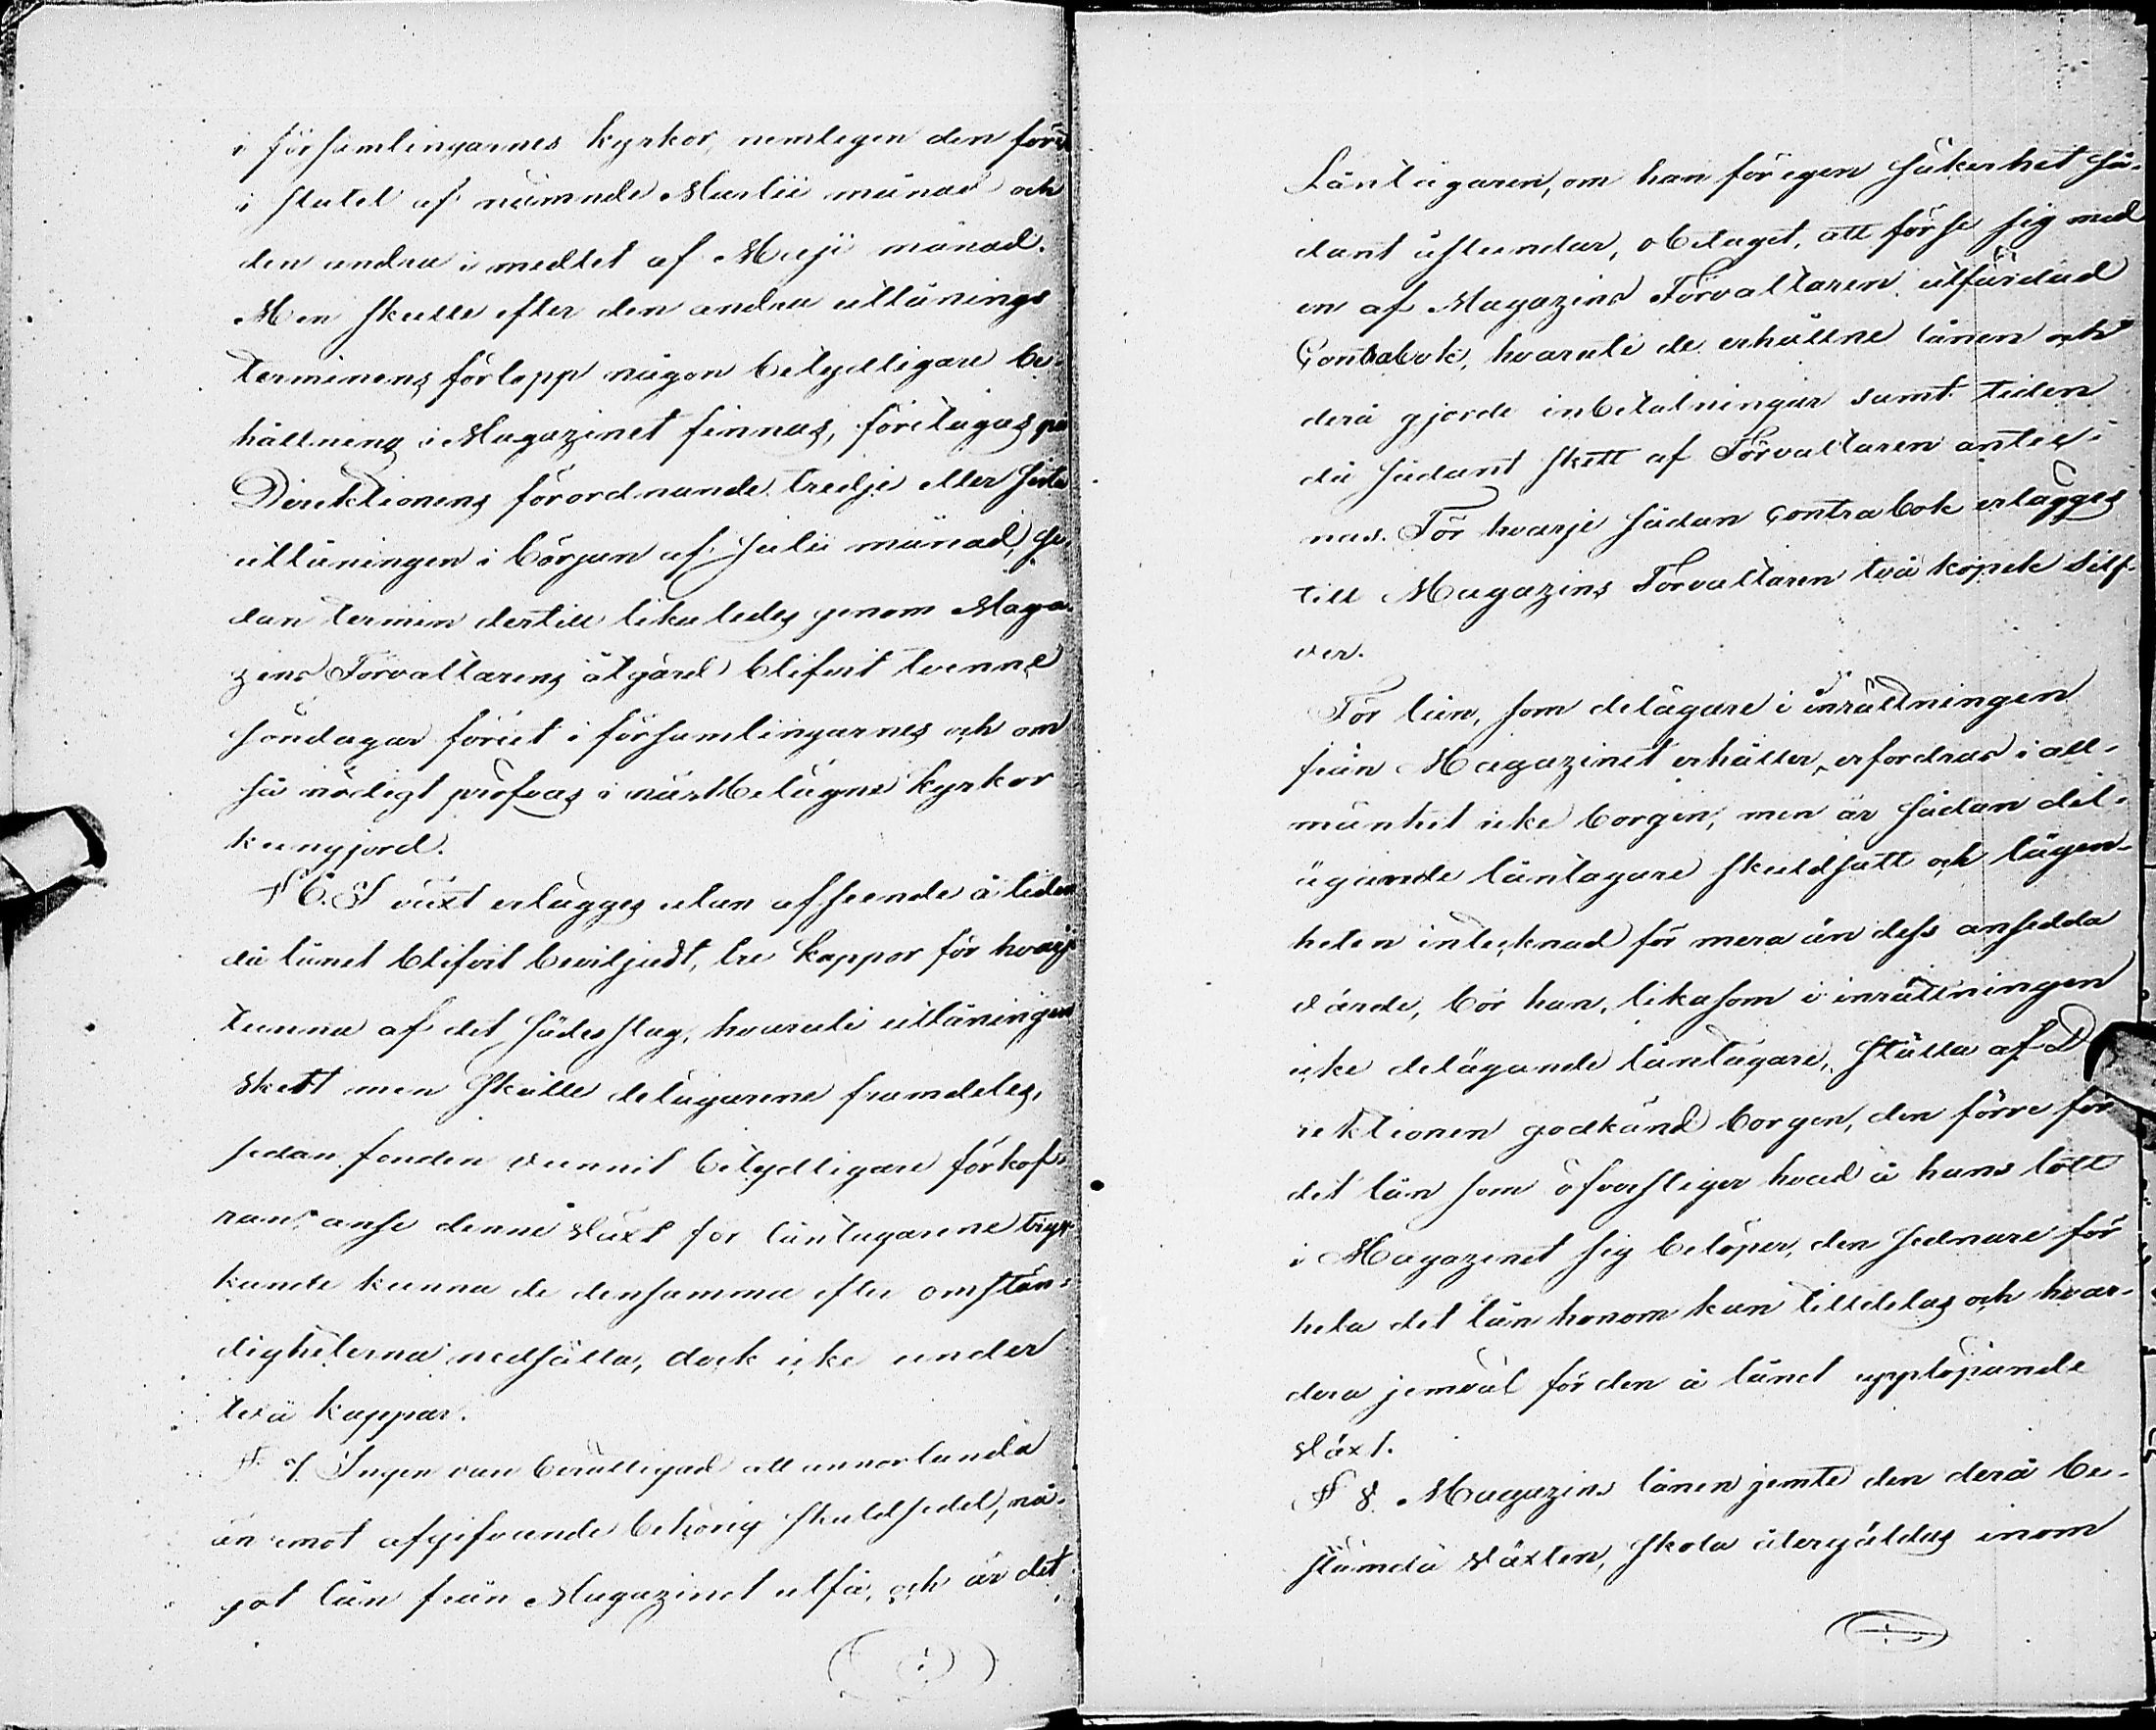 i församlingarnes kyrkor, nemligen den förra
i slutet af nämnde Martii månad och
den andra i medlet af Maji månad.
Men skulle efter den andra utlånings
terminens förlopp någon betydligare be-
hållning i Magazinet finnas, företages på
Direktionens förordnande tredje eller sista
utlåningen i början af Julii månad, se-
dan termin dertill likaledes genom Maga-
zins Förvaltarens åtgärd blifvit tvenne
söndagar förut i församlingarnes och om
så nödigt pröfvas i närstbelägne kyrkor
kungjord.
§ 6. I växt erlägges utan afseende å tiden
då lånet blifvit beviljadt, tre kappor för hvarje
tunna af det sädesslag, hvaruti utlåningen
skett men skulle delägarene framdeles,
sedan fonden vunnit betydligare förkof-
ran, anse denne växt för låntagarene tryc-
kande kunna de densamma efter omstän-
digheterna nedsätta, dock icke under
två kappar.
§ 7. Ingen vare berättigad att annorlunda
än emot afgifvande behörig skuldsedel, nå-
got lån från Magazinet utfå, och är det
Låntagaren, om han för egen säkerhet så-
dant åstundar, obetaget, att förse sig med
en af Magazins Förvaltaren utfärdad
Contrabok, hvaruti de erhållne lånen och
derå gjorde inbetalningar samt tiden
då sådant skett af Förvaltaren anteck-
nas. För hvarje sådan Contrabok erlägges
till Magazins Förvaltaren två kopek Silf-
ver.
För lån, som delägare i inrättningen
från Magazinet erhåller, erfordras i all-
mänhet icke borgen; men är sådan del-
ägande låntagare skuldsatt och lägen-
heten intecknad för mera än dess ansedda
värde, bör han, likasom i inrättningen
icke delägande låntagare, ställa af Di-
rektionen godkänd borgen, den förre för
det lån som öfverstiger hvad å hans lott
i Magazinet sig belöper, den sednare för
hela det lån honom kan tilldelas och hvar-
dera jemväl för den å lånet upplöpande
växt.
§ 8. Magazins lånen jemte den derå be-
stämda växten, skola återgäldas inom